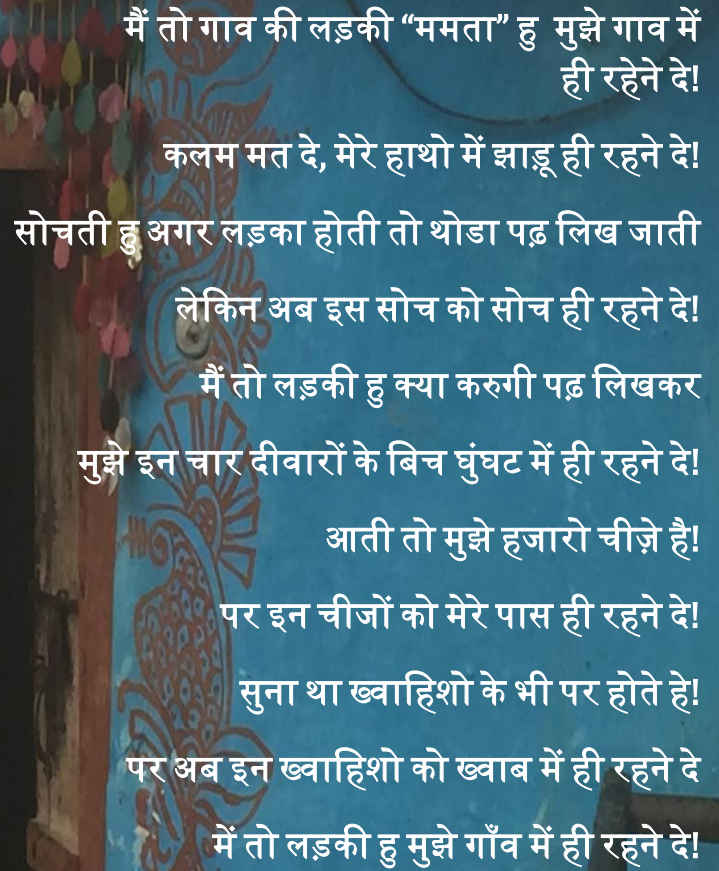 मैं तो गाव की लड़की “ममता” हु मुझे गाव में
ही रहेने दे!
कलम मत दे, मेरे हाथो में झाड़ू ही रहने दे!
सोचती हु अगर लड़का होती तो थोडा पढ़ लिख जाती
लेकिन अब इस सोच को सोच ही रहने दे!
मैं तो लड़की हु क्या करुगी पढ़ लिखकर
मुझे इन चार दीवारों के बिच घुंघट में ही रहने दे!
आती तो मुझे हजारो चीज़े है!
पर इन चीजों को मेरे पास ही रहने दे!
सुना था ख्वाहिशो के भी पर होते हे!
पर अब इन ख्वाहिशो को ख्वाब में ही रहने दे
में तो लड़की हु मुझे गाँव में ही रहने दे!